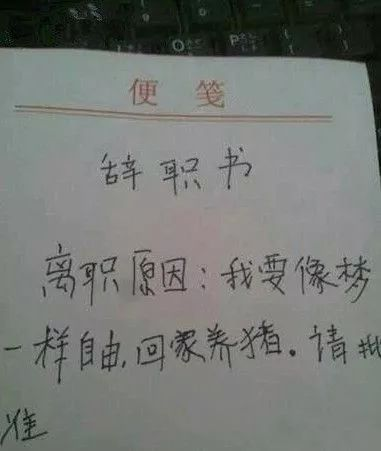 O
P
便笺
辞职书
离职原因：我要像梦
一样自由，回家养猪。请批
准